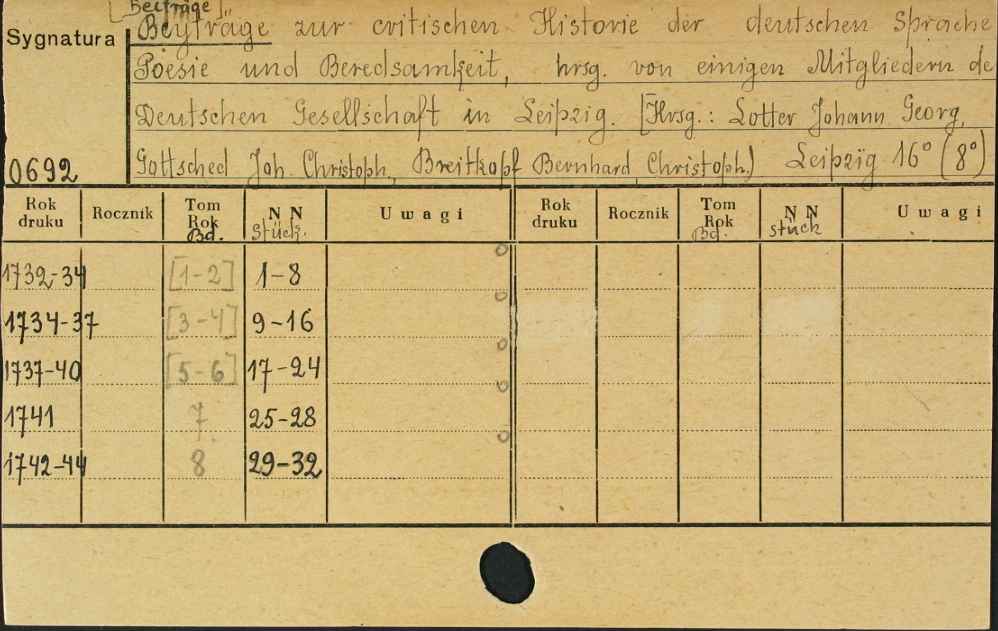 [Beiträge]
Sygnatura
Beyträge zur critischen Historie der deutschen Sprache
Poesie und Beredsamkeit, hrsg. von einigen Mitgliedern de
Deutschen Gesellschaft in Leipzig. [Hrsg.: Lotter Johann Georg,
0692
Gottsched Joh. Christoph., Breitkopf Bernhard Christoph.) Leipzig 16° (8°)
Rok druku Rocznik Tom Rok Bd. N N Stück. Uwagi Rok druku Rocznik Tom Rok Bd. N N stück Uwagi
1732-34 [1-2] 1-8
1734-37 [3-4] 9-16
1737-40 [5-6] 17-24
1741 7 25-28
1742-44 8 29-32